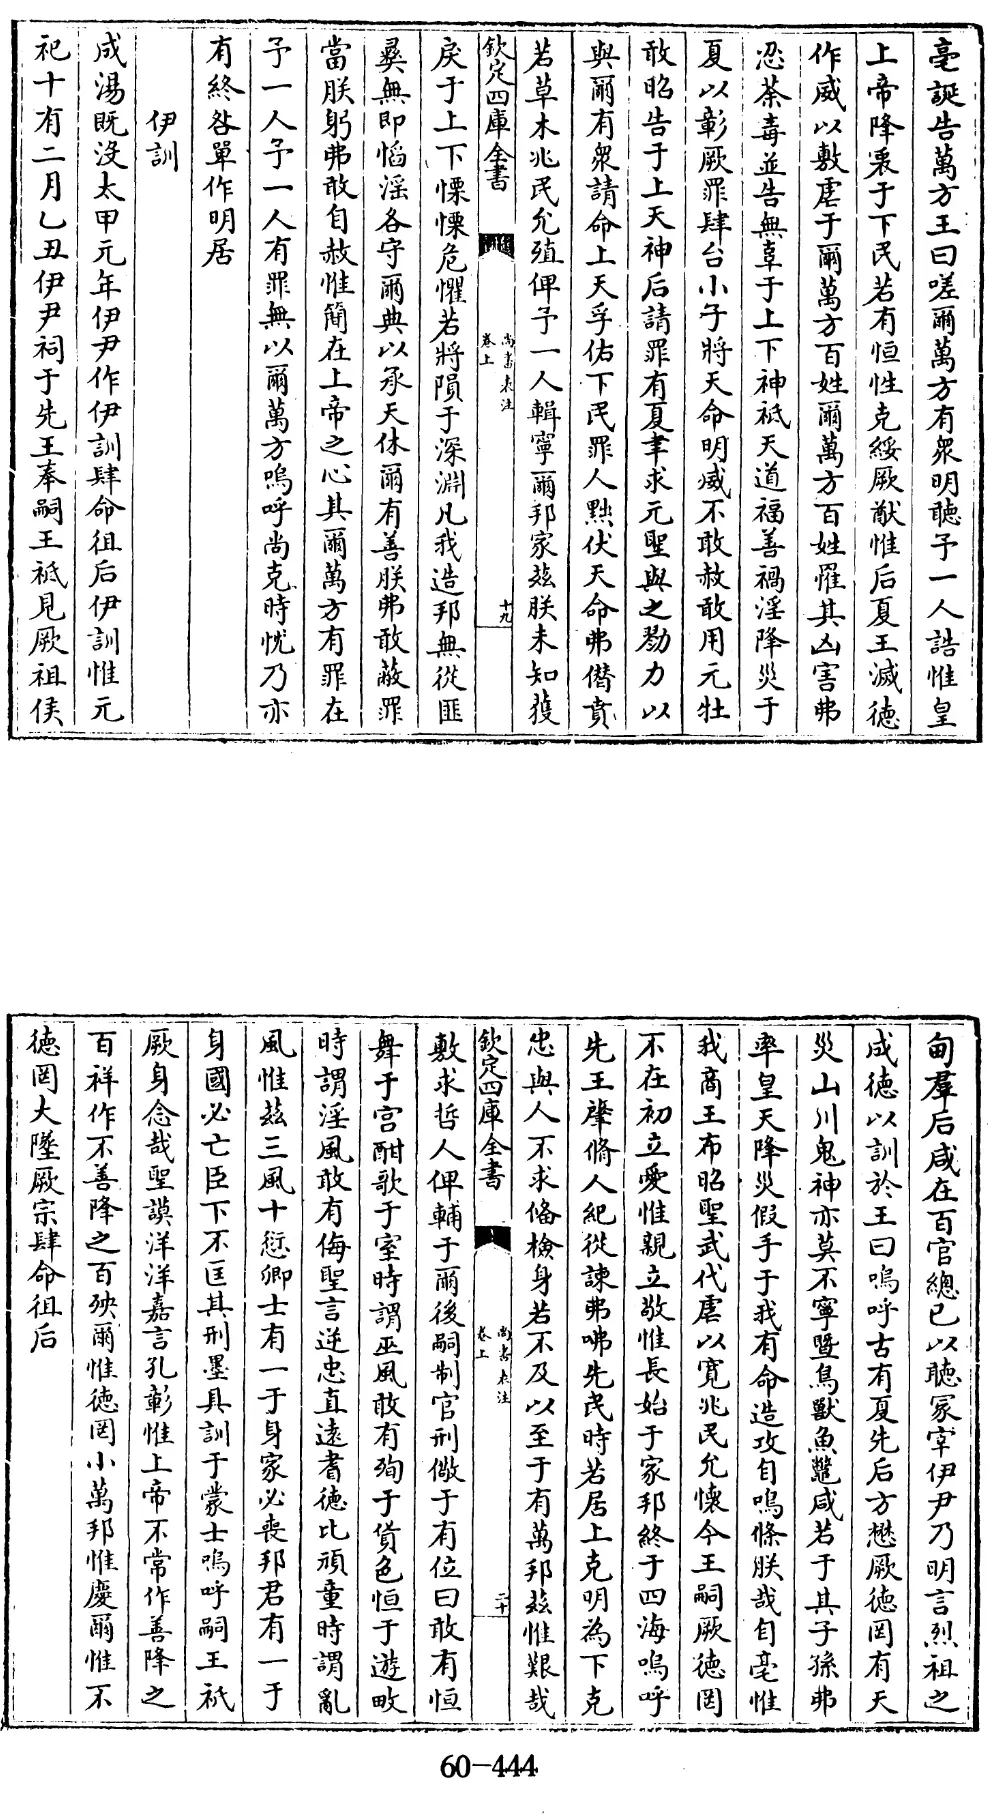 亳誕告萬方王曰嗟爾萬方有衆明聽予一人誥惟皇
上帝降衷于下民若有恒性克綏厥猷惟后夏王滅德
作威以敷虐于爾萬方百姓爾萬方百姓罹其凶害弗
忍荼毒並告無辜于上下神祗天道福善禍淫降災于
夏以彰厥罪肆台小子將天命明威不敢赦敢用元牡
敢昭告于上天神后請罪有夏聿求元聖與之勠力以
與爾有衆請命上天孚佑下民罪人黜伏天命弗僭賁
若草木兆民允殖俾予一人輯寧爾邦家茲朕未知獲
欽定四庫全書
尚書表注
卷上
十九
戾于上下慄慄危懼若將隕于深淵凡我造邦無從匪
彛無即慆淫各守爾典以承天休爾有善朕弗敢蔽罪
當朕躬弗敢自赦惟簡在上帝之心其爾萬方有罪在
予一人予一人有罪無以爾萬方嗚呼尚克時忱乃亦
有終咎單作明居
伊訓
成湯既沒太甲元年伊尹作伊訓肆命徂后伊訓惟元
祀十有二月乙丑伊尹祠于先王奉嗣王祗見厥祖侯
甸羣后咸在百官總已以聽冢宰伊尹乃明言烈祖之
成徳以訓於王曰嗚呼古有夏先后方懋厥徳罔有天
災山川鬼神亦莫不寧暨鳥獸魚鼈咸若于其子孫弗
率皇天降災假手于我有命造攻自鳴條朕哉自亳惟
我商王布昭聖武代虐以寛兆民允懷今王嗣厥徳罔
不在初立愛惟親立敬惟長始于家邦終于四海嗚呼
先王肇脩人紀從諫弗咈先民時若居上克明為下克
忠與人不求備檢身若不及以至于有萬邦茲惟艱哉
欽定四庫全書
尚書表注
卷上
二十
敷求哲人俾輔于爾後嗣制官刑儆于有位曰敢有恒
舞于宫酣歌于室時謂巫風敢有殉于貨色恒于遊畋
時謂淫風敢有侮聖言逆忠直遠耆徳比頑童時謂亂
風惟茲三風十愆卿士有一于身家必喪邦君有一于
身國必亡臣下不匡其刑墨具訓于蒙士嗚呼嗣王祗
厥身念哉聖謨洋洋嘉言孔彰惟上帝不常作善降之
百祥作不善降之百殃爾惟徳罔小萬邦惟慶爾惟不
徳罔大墜厥宗肆命徂后
60-444